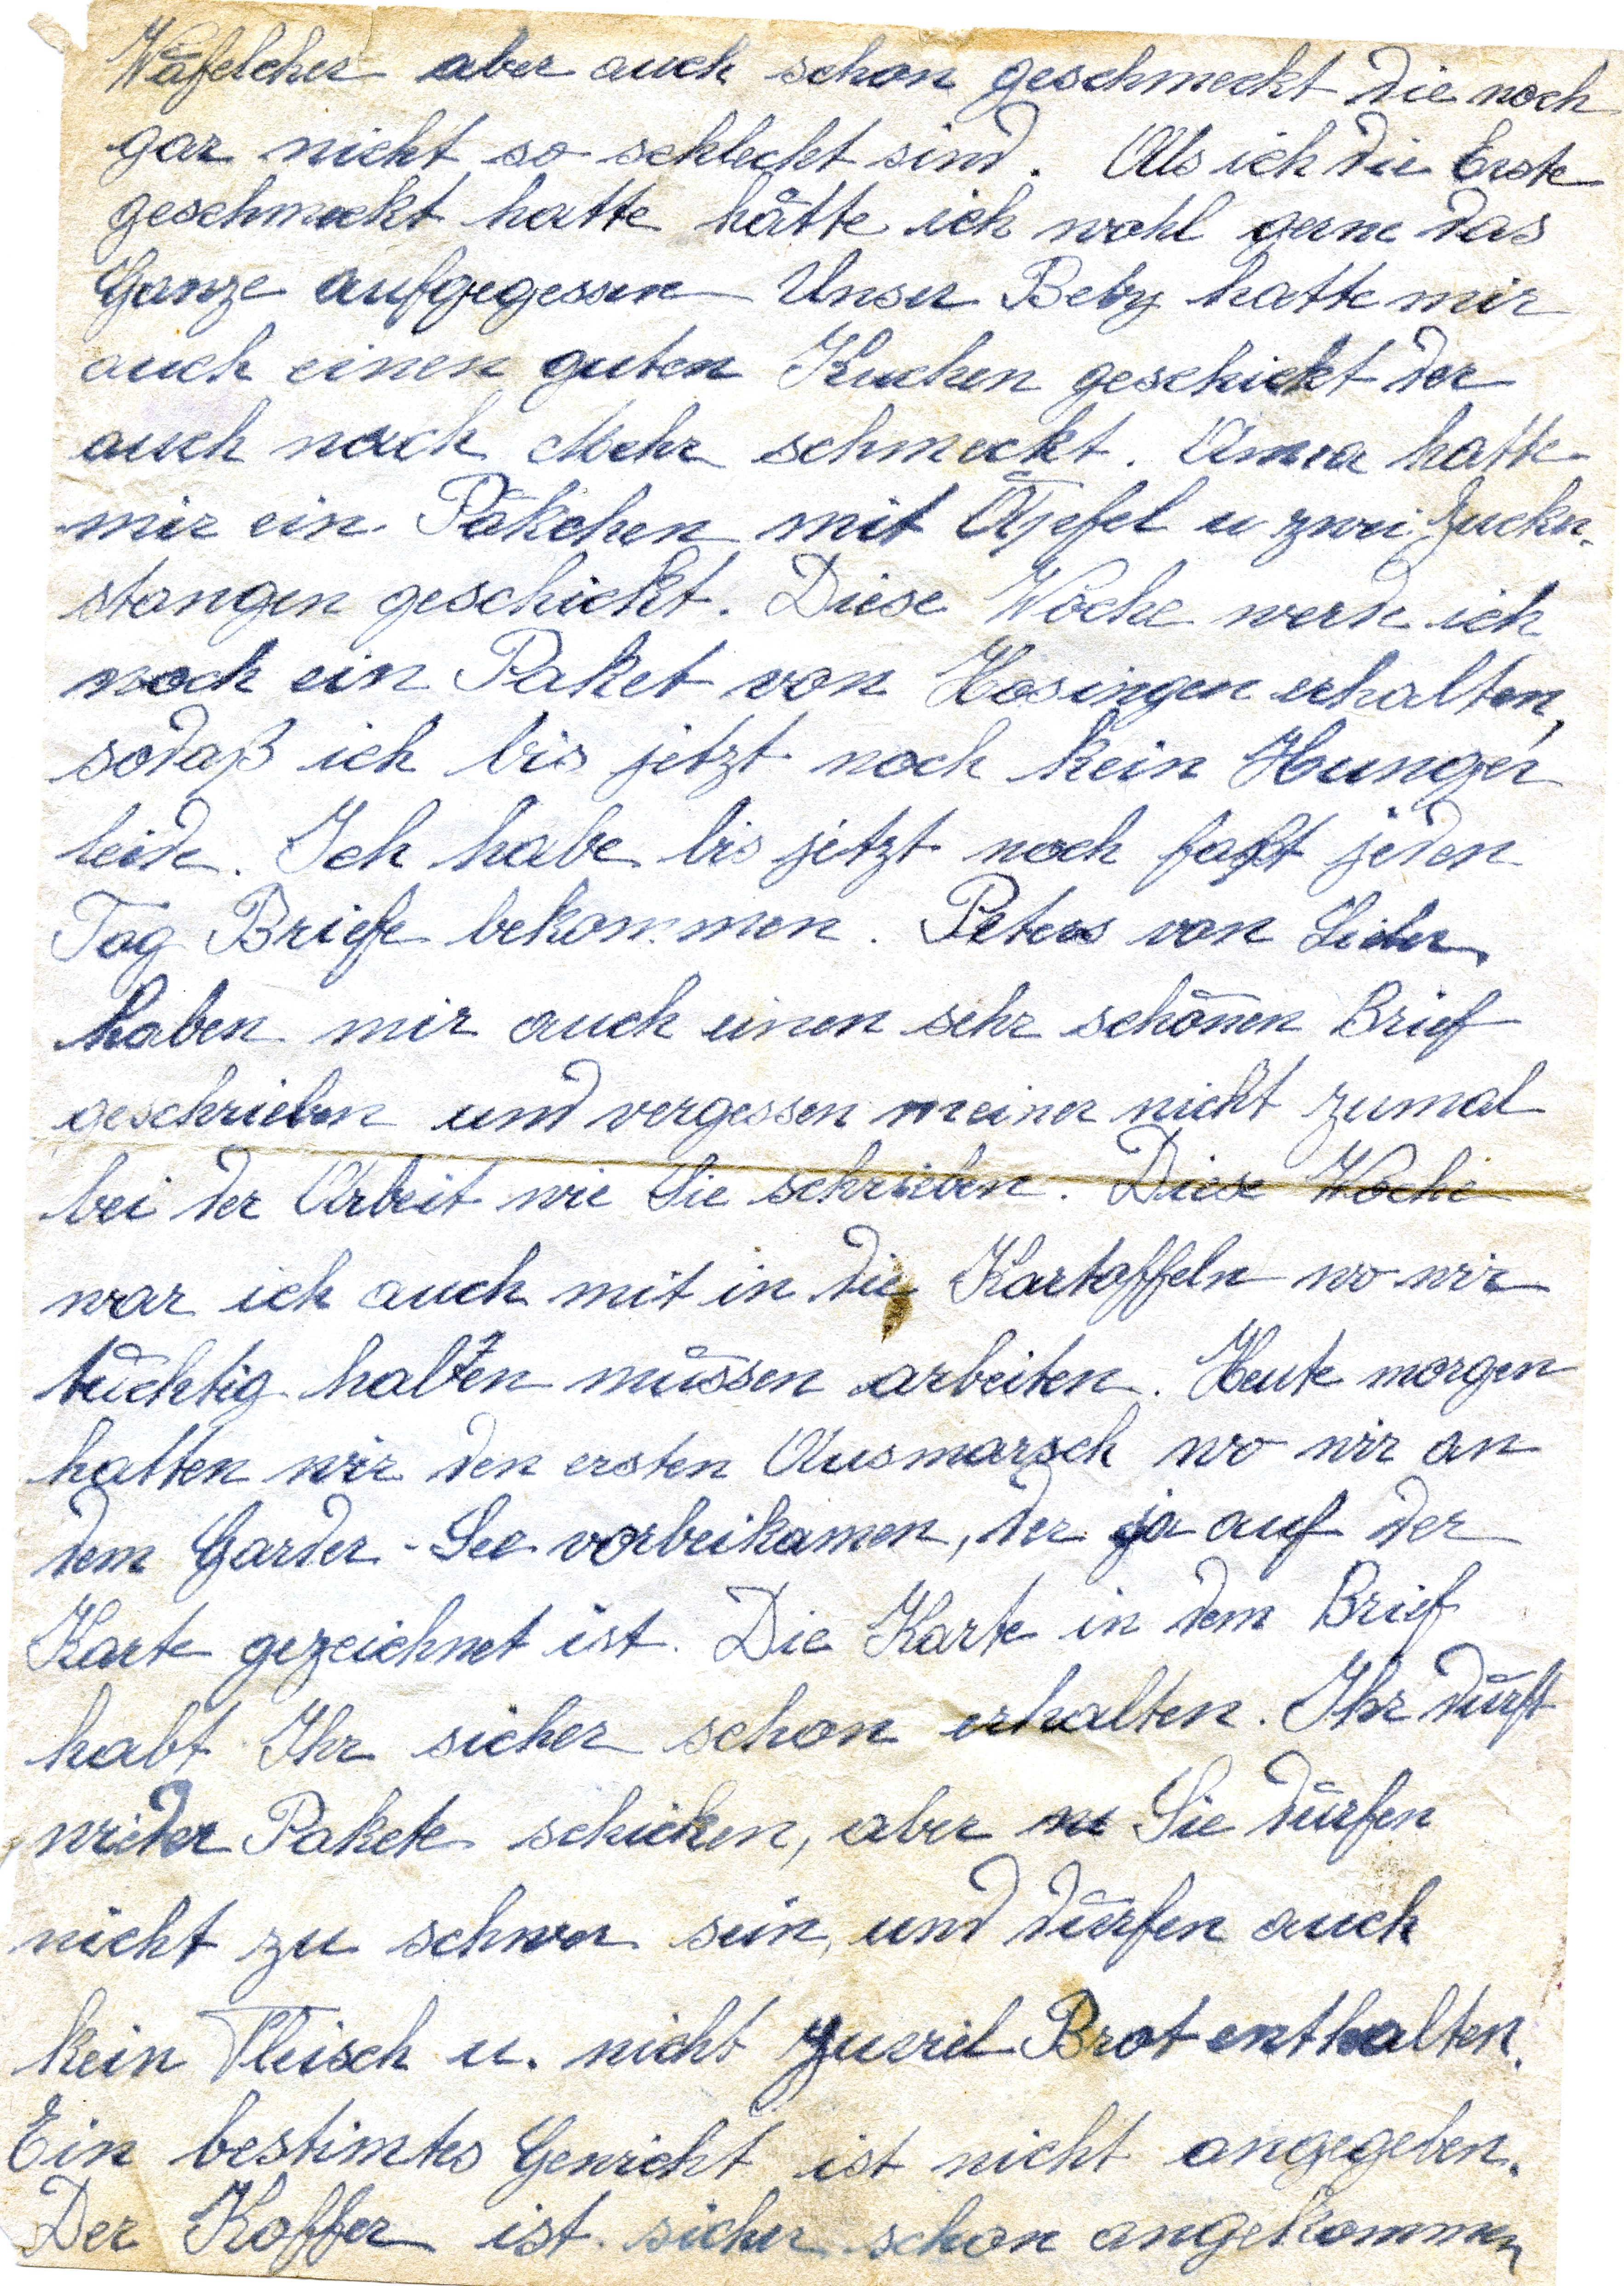 Wäfelcher aber auch schon geschmeckt die noch
gar nicht so schlecht sind. Als ich die Erste
geschmeckt hatte hätte ich wohl gerne das
Ganze aufgegessen Unser Beby hatte mir
auch einen guten Kuchen geschickt der
auch nach Mehr schmeckt. Anna hatte
mir ein Päkchen mit Äpefel u zwei Zucker-
stangen geschickt. Diese Woche werde ich
noch ein Paket von Hosingen erhalten,
sodaß ich bis jetzt noch kein Hunger
leide. Ich habe bis jetzt noch fast jeden
Tag Briefe bekommen. Peters von
haben mir auch einen sehr schönen Brief
geschrieben und vergessen meiner nicht zumal
bei der Arbeit wie Sie schrieben. Diese Woche
war ich auch mit in die Kartoffeln wo wir
tüchtig halten müssen arbeiten. Heute morgen
hatten wir den ersten Ausmarsch wo wir an
dem Garder-See vorbeikamen, der ja auf der
Karte gezeichnet ist. Die Karte in dem Brief
habt Ihr sicher schon erhalten. Ihr dürft
wieder Pakete schicken, aber Sie dürfen
nicht zu schwer sein, und dürfen auch
kein Fleisch u. nicht zuviel Brot enthalten.
Ein bestimtes Gewicht ist nicht angegeben.
Der Koffer ist sicher schon angekommen